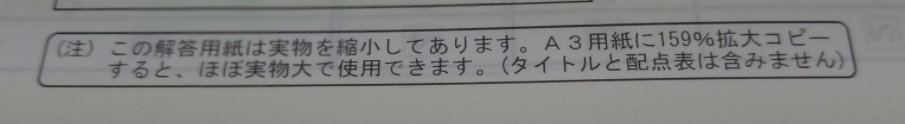 (注) この解答用紙は実物を縮小してあります。A3用紙に159%拡大コピー
すると、ほぼ実物大で使用できます。(タイトルと配点表は含みません)